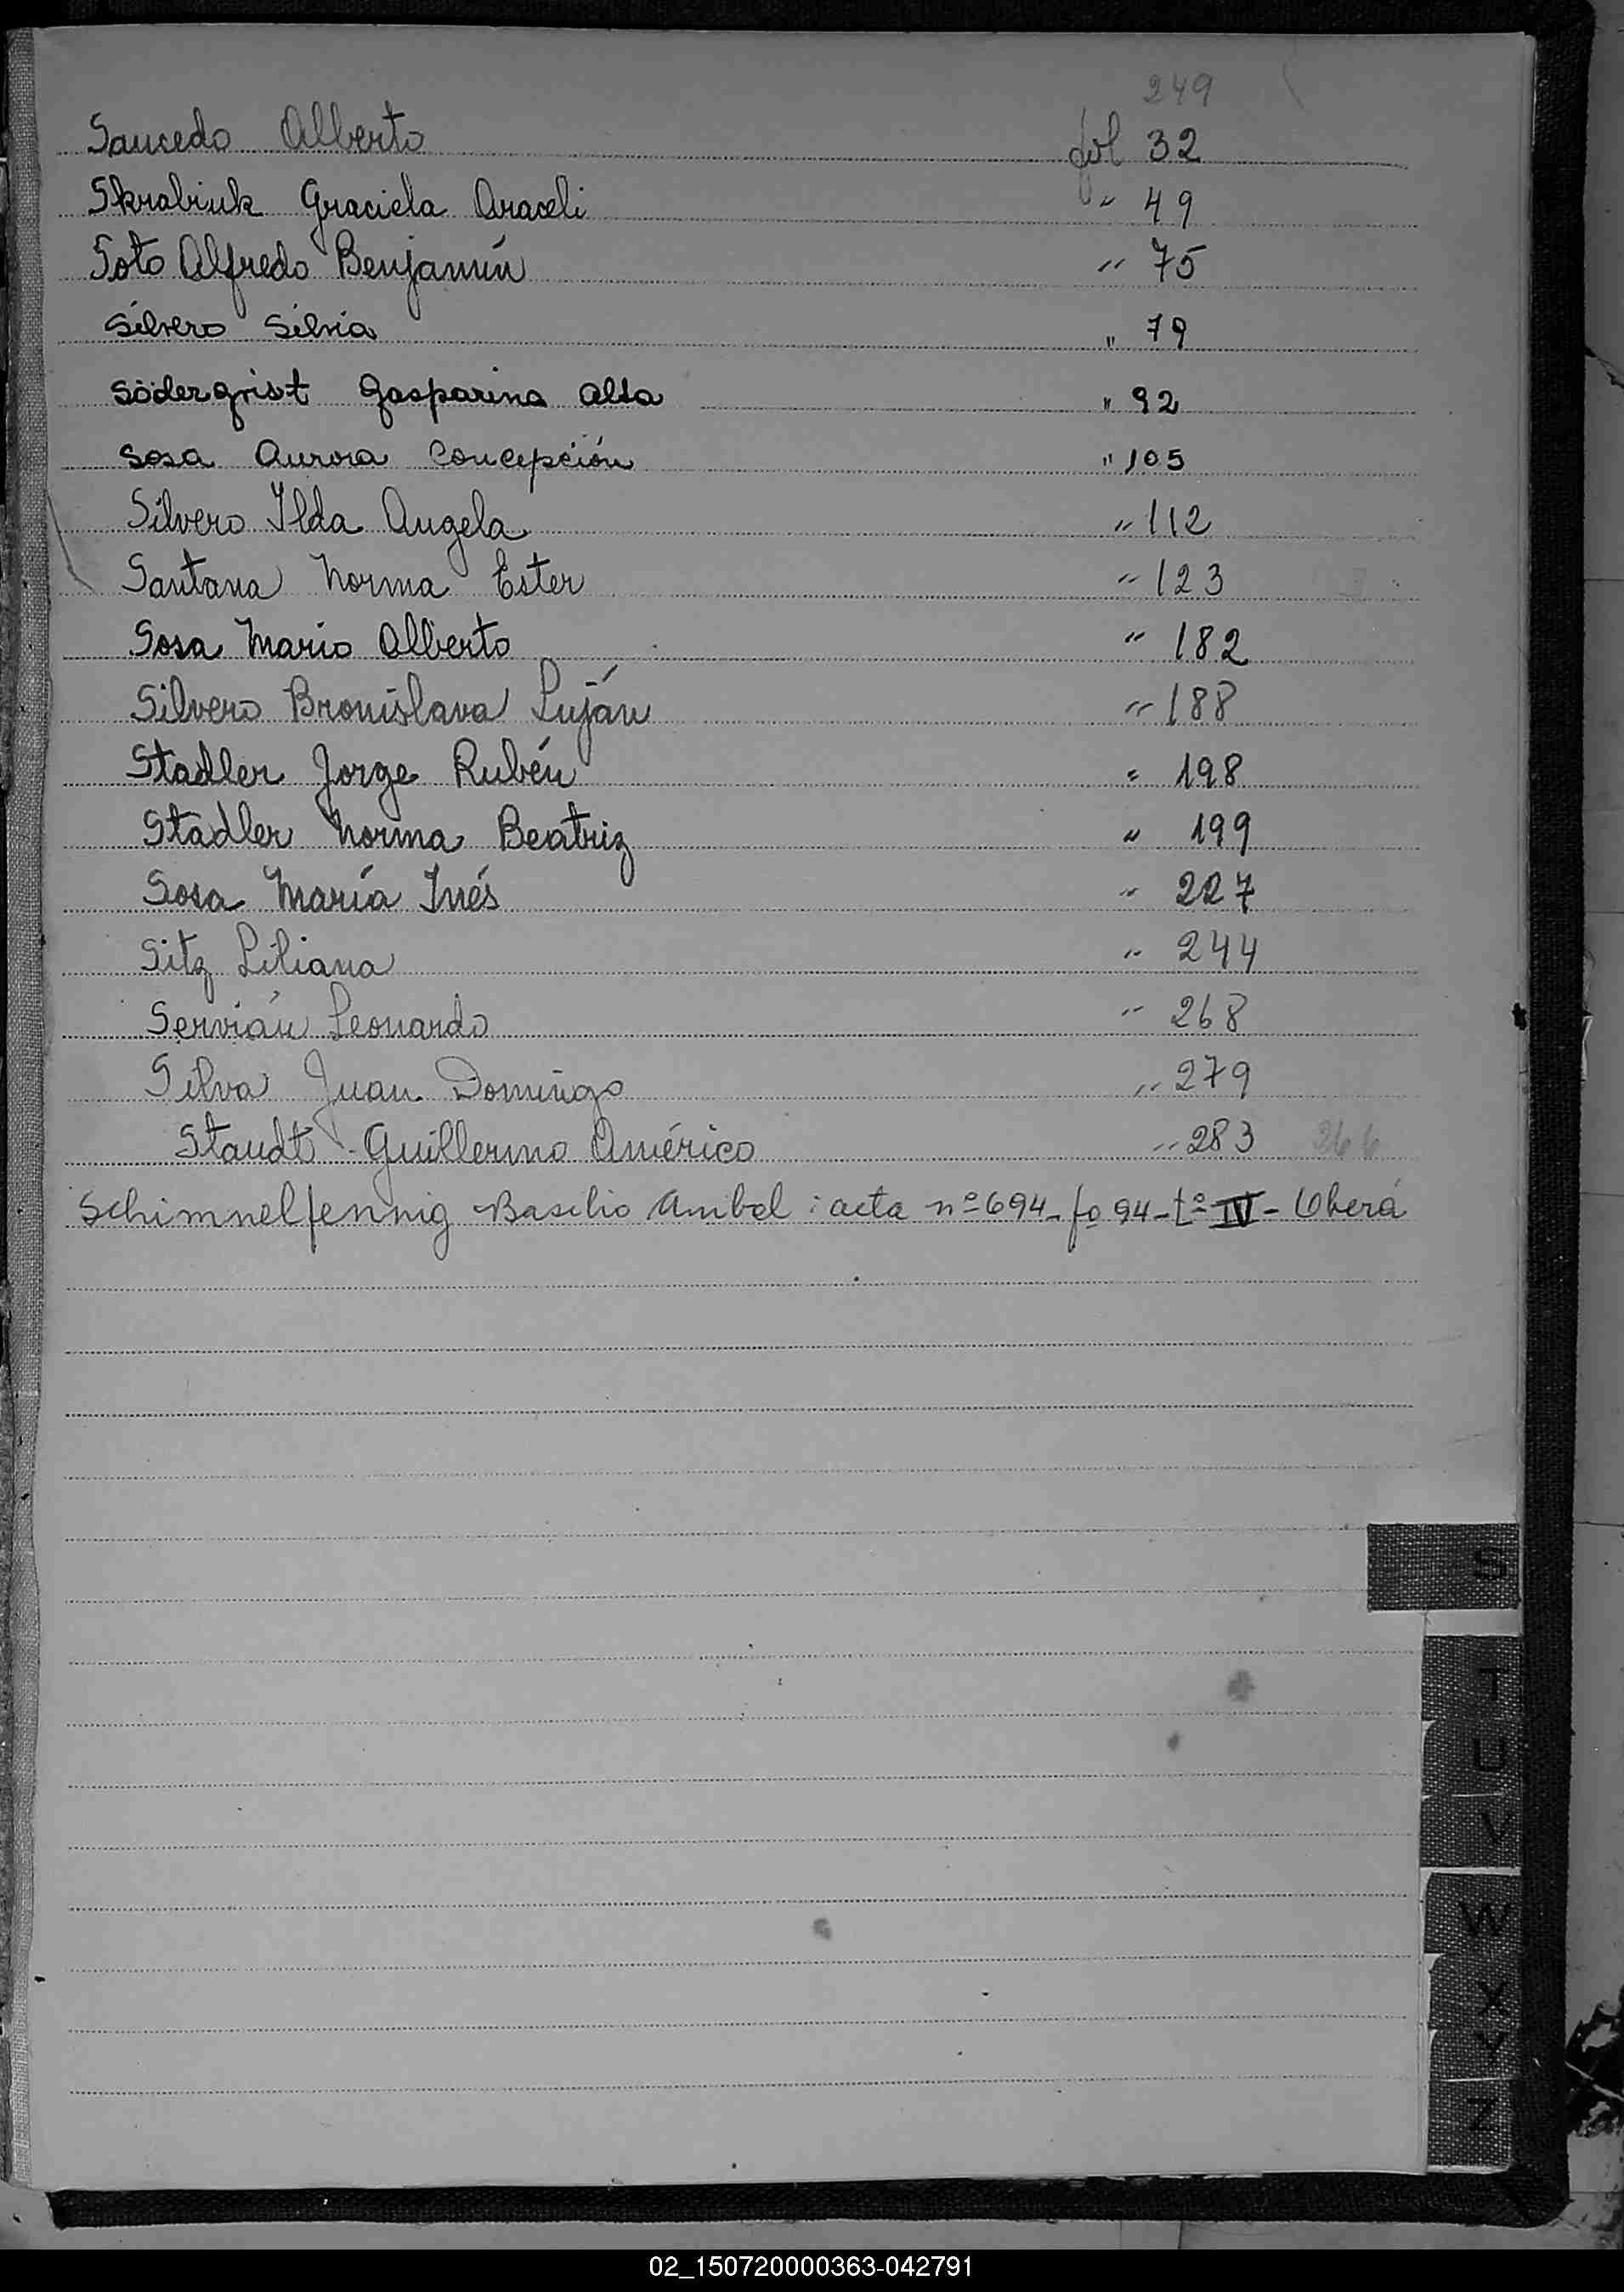 249
Saucedo Alberto fol 32
Skrabiuk Graciela Araceli " 49
Soto Alfredo Benjamín " 75
Silvero Silvia " 79
Söderqvist Gasparina Alda " 92
Sosa Aurora Concepción " 105
Silvero Ilda Angela " 112
Santana Norma Ester " 123
Sosa Mario Alberto " 182
Silvero Bronislava Luján " 188
Stadler Jorge Rubén " 198
Stadler Norma Beatriz " 199
Sosa María Inés " 227
Sitz Liliana " 244
Servián Leonardo " 268
Silva Juan Domingo " 279
Staudt Guillermo Américo " 283 266
Schimnelfennig Basilio Anibal : acta nº 694 - fo 94 - tº IV - Oberá
S
T
U
V
W
X
Y
Z
02_150720000363-042791